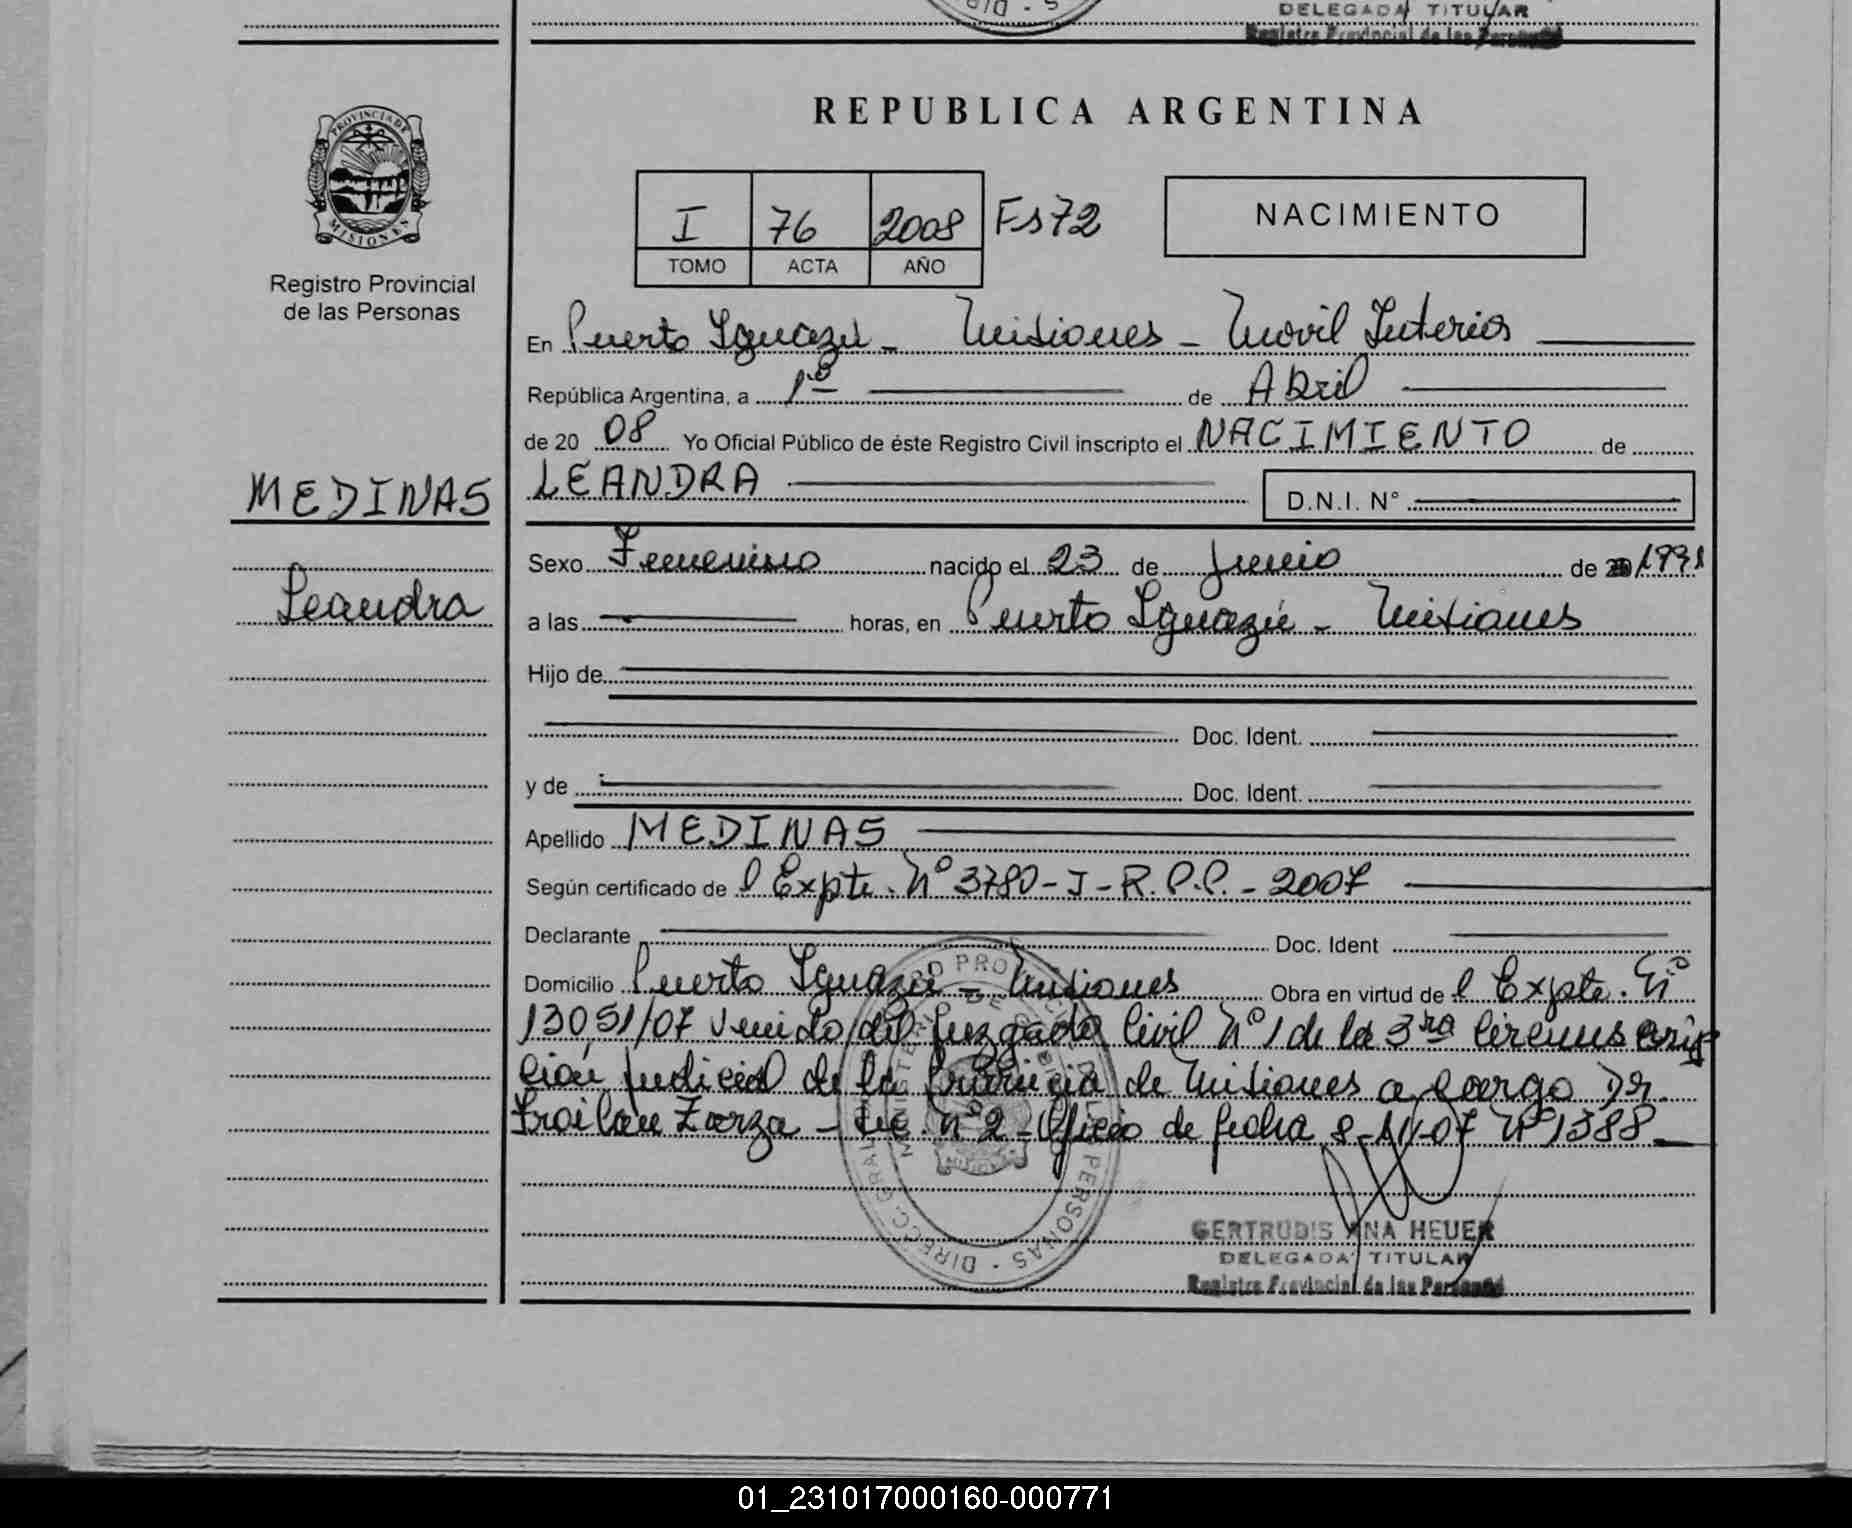 DELEGADA TITULAR
Registro Provincial de las Personas
PROVINCIA DE
MISIONES
Registro Provincial
de las Personas
MEDINAS
Leandra
REPUBLICA ARGENTINA
I 76 2008 Fs 72
TOMO ACTA AÑO
NACIMIENTO
En Puerto Iguazú - Misiones - Movil Interior
República Argentina, a 1º de Abril
de 20 08 Yo Oficial Público de éste Registro Civil inscripto el NACIMIENTO de
LEANDRA D.N.I. N°
Sexo Femenino nacido el 23 de Junio de 20 1991
a las horas, en Puerto Iguazú - Misiones
Hijo de
Doc. Ident.
y de Doc. Ident.
Apellido MEDINAS
Según certificado de l Expte. Nº 3780-J-R.P.P.-2007
Declarante Doc. Ident
Domicilio Puerto Iguazú - Misiones Obra en virtud de l Expte. Nº
13051/07 venido del Juzgado Civil Nº 1 de la 3ra Circunscrip
ción Judicial de la Provincia de Misiones a cargo Dr.
Froilan Zarza - Sec. Nº 2 - Oficio de fecha 8-11-07 Nº 1388
GERTRUDIS ANA HEUER
DELEGADA TITULAR
Registro Provincial de las Personas
01_231017000160-000771